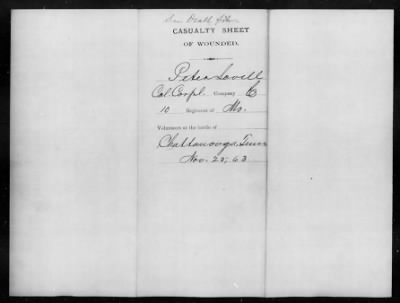 See Death
CASUALTY SHEET
OF WOUNDED.
Peter Lovell
Col. Corpl. Company
10 Regiment of Mo.
Volunteers at the battle of
Chattanooga, Tenn
Nov. 25, 63